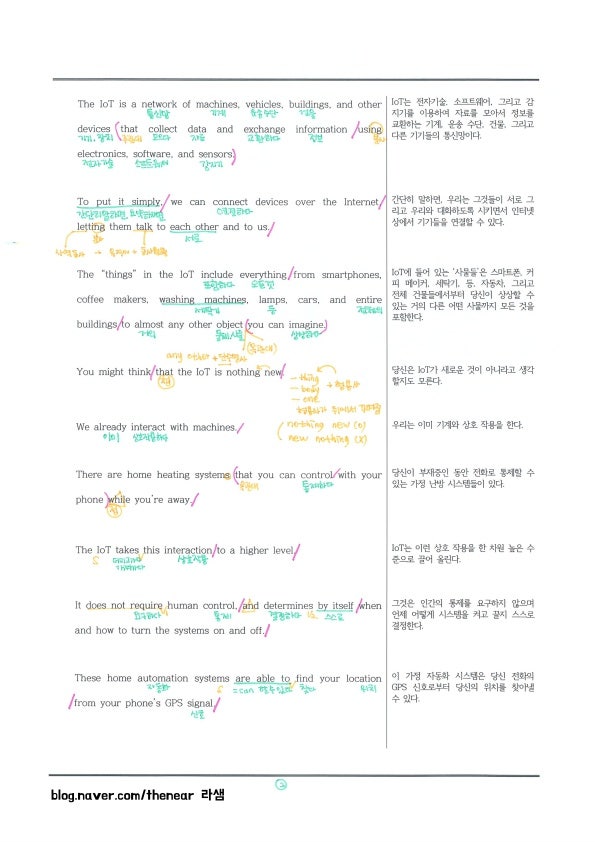 The IoT is a network of machines, vehicles, buildings, and other
통신망 기계 운송수단 건물
devices (that collect data and exchange information / using
기기, 장치 모으다 자료 교환하다 정보
electronics, software, and sensors.)
전자기술 소프트웨어 감지기
IoT는 전자기술, 소프트웨어, 그리고 감
지기를 이용하여 자료를 모아서 정보를
교환하는 기계, 운송 수단, 건물, 그리고
다른 기기들의 통신망이다.
To put it simply, / we can connect devices over the Internet /
간단히말하면, 요약하자면 연결하다
letting them talk to each other and to us.
서로
간단히 말하면, 우리는 그것들이 서로 그
리고 우리와 대화하도록 시키면서 인터넷
상에서 기기들을 연결할 수 있다.
The "things" in the IoT include everything / from smartphones,
포함하다 모든것
coffee makers, washing machines, lamps, cars, and entire
세탁기 등 전체의
buildings / to almost any other object (you can imagine.)
거의 물체, 사물 상상하다
(목관대)
any other + 단수명사
IoT에 들어 있는 '사물들'은 스마트폰, 커
피 메이커, 세탁기, 등, 자동차, 그리고
전체 건물들에서부터 당신이 상상할 수
있는 거의 다른 어떤 사물까지 모든 것을
포함한다.
You might think / that the IoT is nothing new.
- thing
- body + 형용사
- one
형용사가 뒤에서 꾸며줌
( nothing new (O)
new nothing (X)
당신은 IoT가 새로운 것이 아니라고 생각
할지도 모른다.
We already interact with machines.
이미 상호작용하다
우리는 이미 기계와 상호 작용을 한다.
There are home heating systems (that you can control / with your
통제하다
phone ) while you're away.
접
당신이 부재중인 동안 전화로 통제할 수
있는 가정 난방 시스템들이 있다.
The IoT takes this interaction / to a higher level.
S 데리고가다 상호작용
가져가다
IoT는 이런 상호 작용을 한 차원 높은 수
준으로 끌어 올린다.
It does not require human control, / and determines by itself / when
요구하다 통제 결정하다 스스로
and how to turn the systems on and off.
그것은 인간의 통제를 요구하지 않으며
언제 어떻게 시스템을 켜고 끌지 스스로
결정한다.
These home automation systems are able to find your location
자동화 =can 할수있다 찾다 위치
/ from your phone's GPS signal.
신호
이 가정 자동화 시스템은 당신 전화의
GPS 신호로부터 당신의 위치를 찾아낼
수 있다.
③
blog.naver.com/thenear 라샘